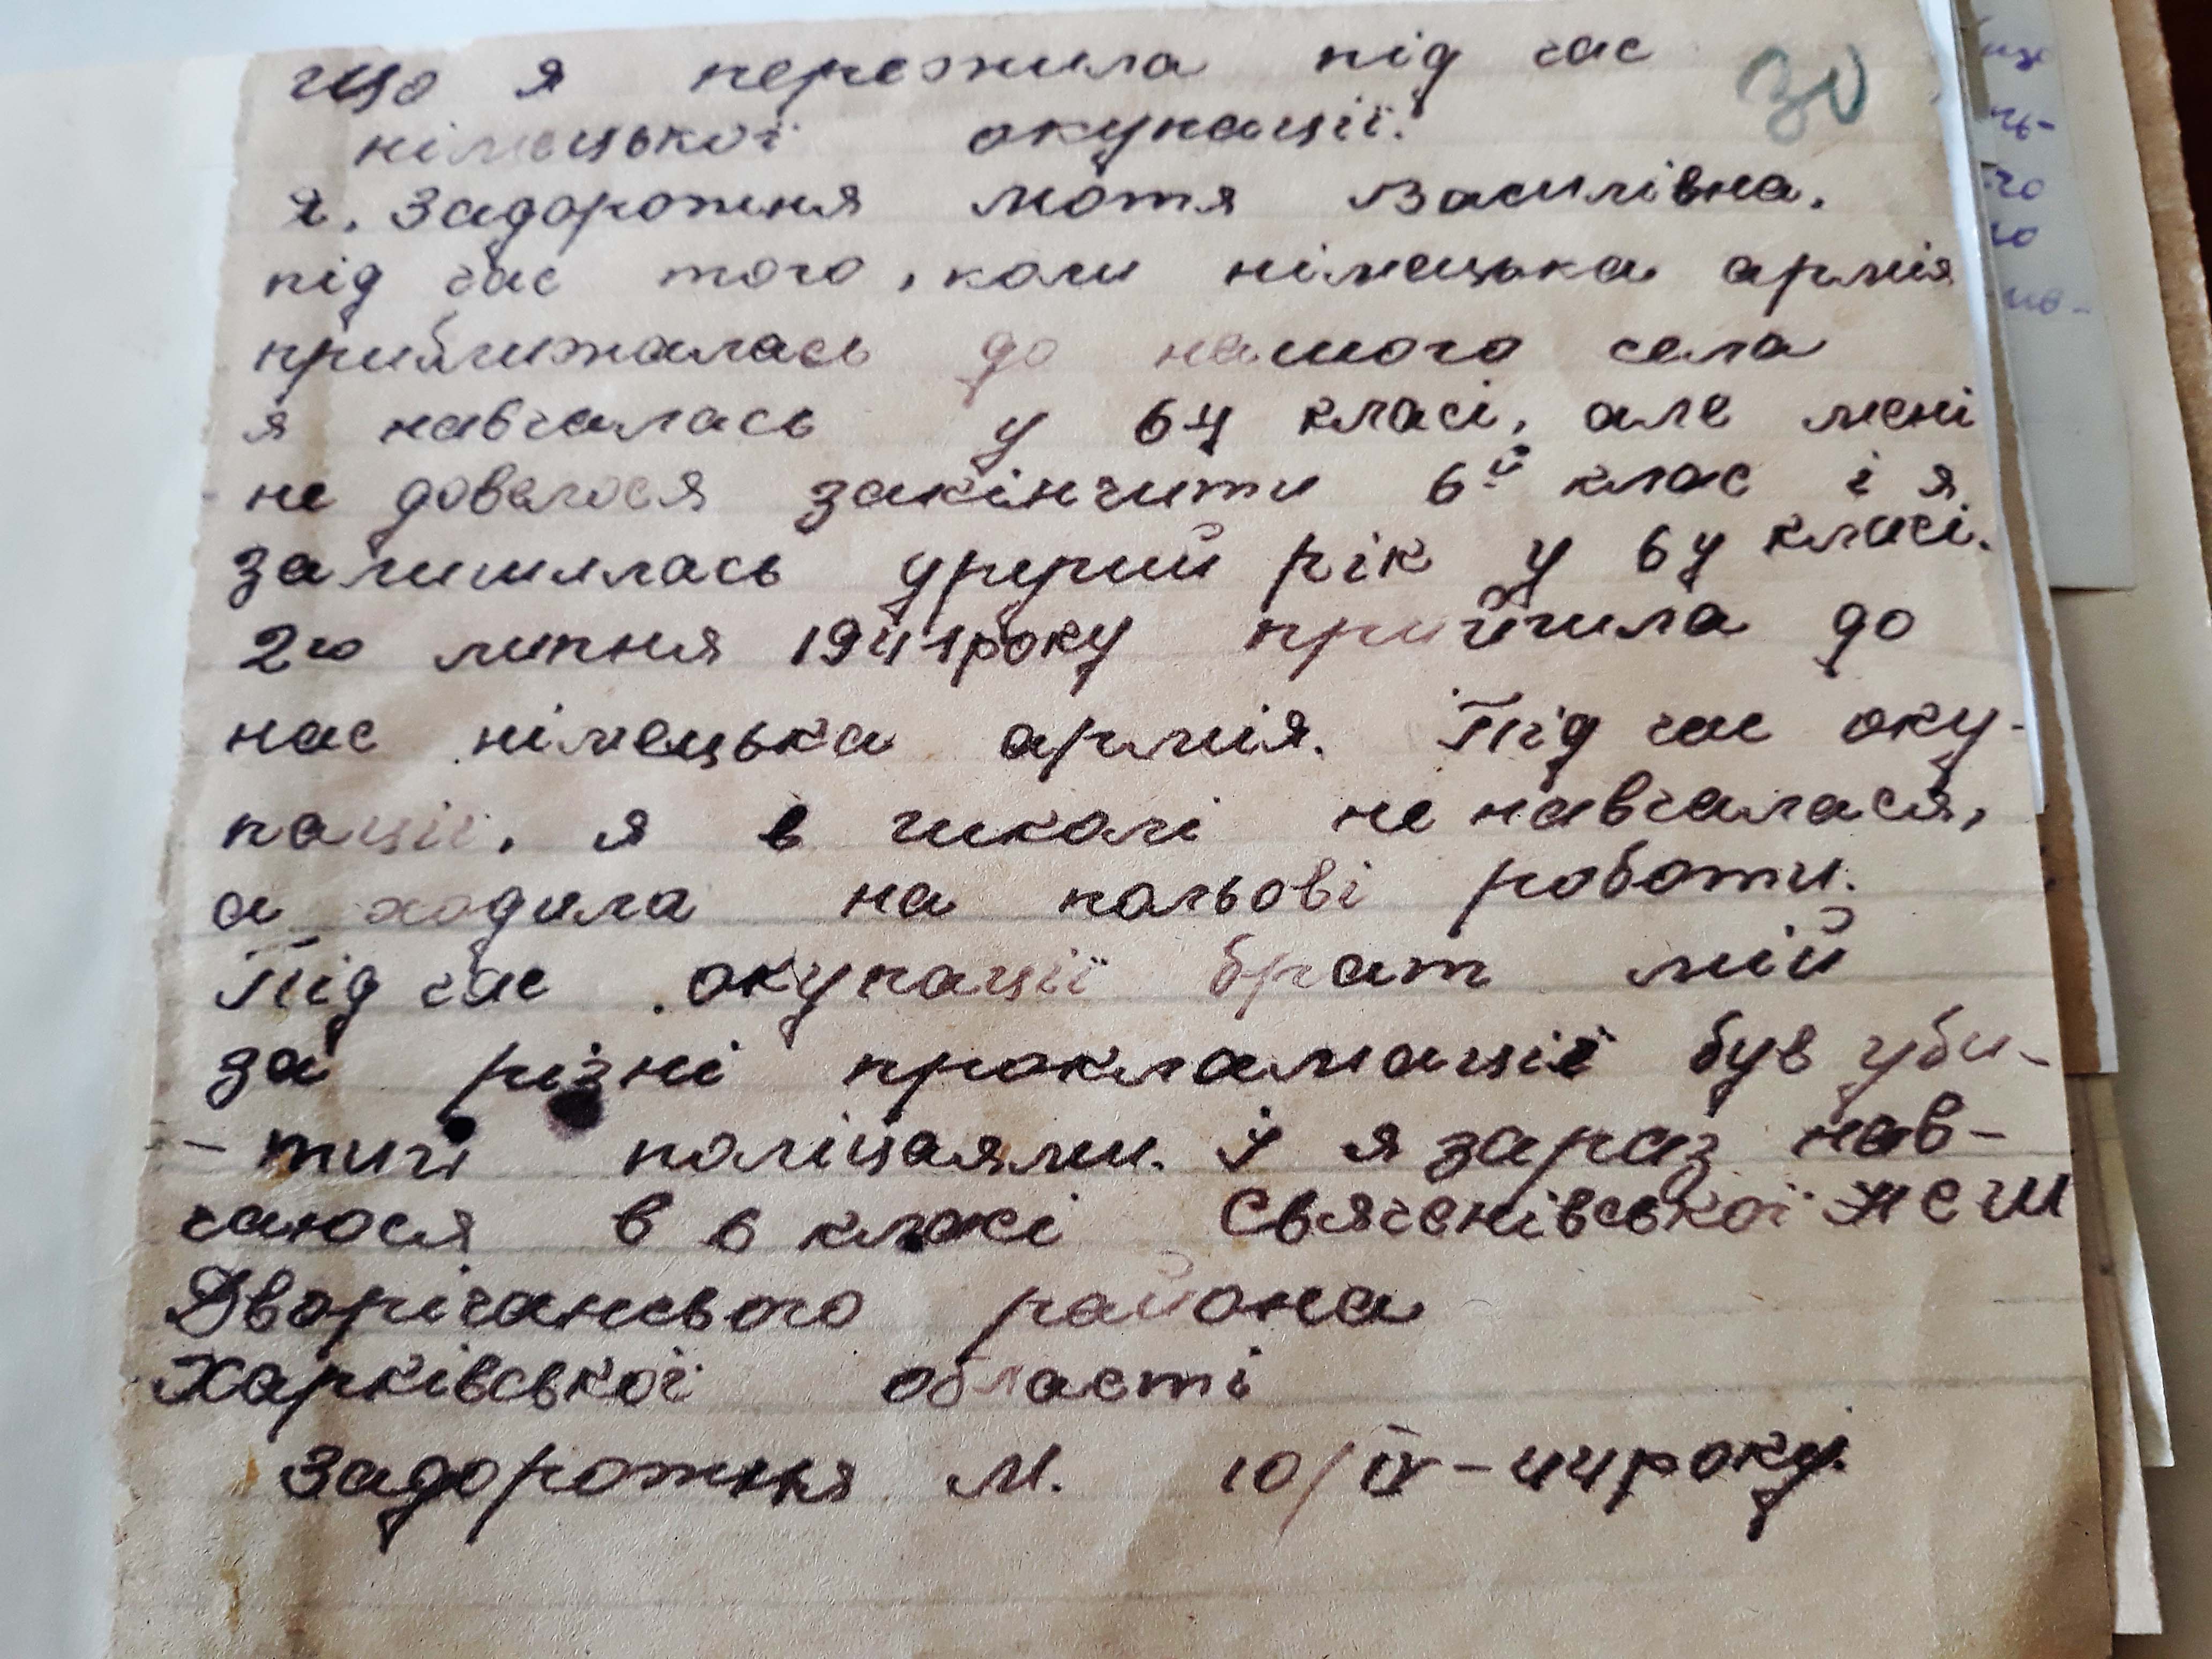 Що я пережила під час
30
німецької окупації.
Я, Задорожня Мотя Василівна.
під час того, коли німецька армія
приближалась до нашого села
я навчалась у 6у класі, але мені
не довелося закінчити 6й клас і я
залишилась другий рік у 6у класі.
2го липня 1941року прийшла до
нас німецька армія. Під час оку-
пації, я в школі не навчалася,
а ходила на польові роботи.
Під час окупації брат мій
за різні прокламації був уби-
-тий поліцаями. І я зараз нав-
чаюся в 6 класі Свяченівської НСШ
Дворічансього района
Харківської області
Задорожня М. 10/IV-44року.